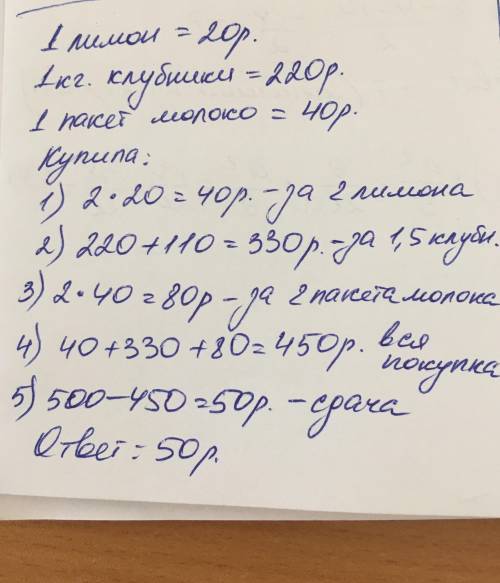 1 лимон = 20р.
1кг. клубники = 220р.
1 пакет молоко = 40р.
Купила:
1) 2·20 = 40р. - за 2 лимона
2) 220 + 110 = 330р. - за 1,5 клубн.
3) 2·40 = 80р - за 2 пакета молока
4) 40 + 330 + 80 = 450р. вся покупка
5) 500 - 450 = 50р. - сдача
Ответ: 50р.